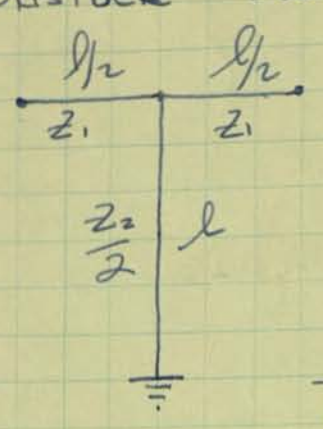 l/2 l/2
Z₁ Z₁
Z₂/2 l